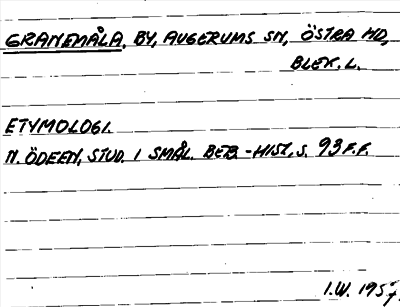 GRANEMÅLA, BY, AUGERUMS SN, ÖSTRA HD,
BLEK. L.
ETYMOLOGI.
N. ÖDEEN, STUD. I SMÅL. BEB.-HIST, S. 93 F.F.
I.W. 1957.